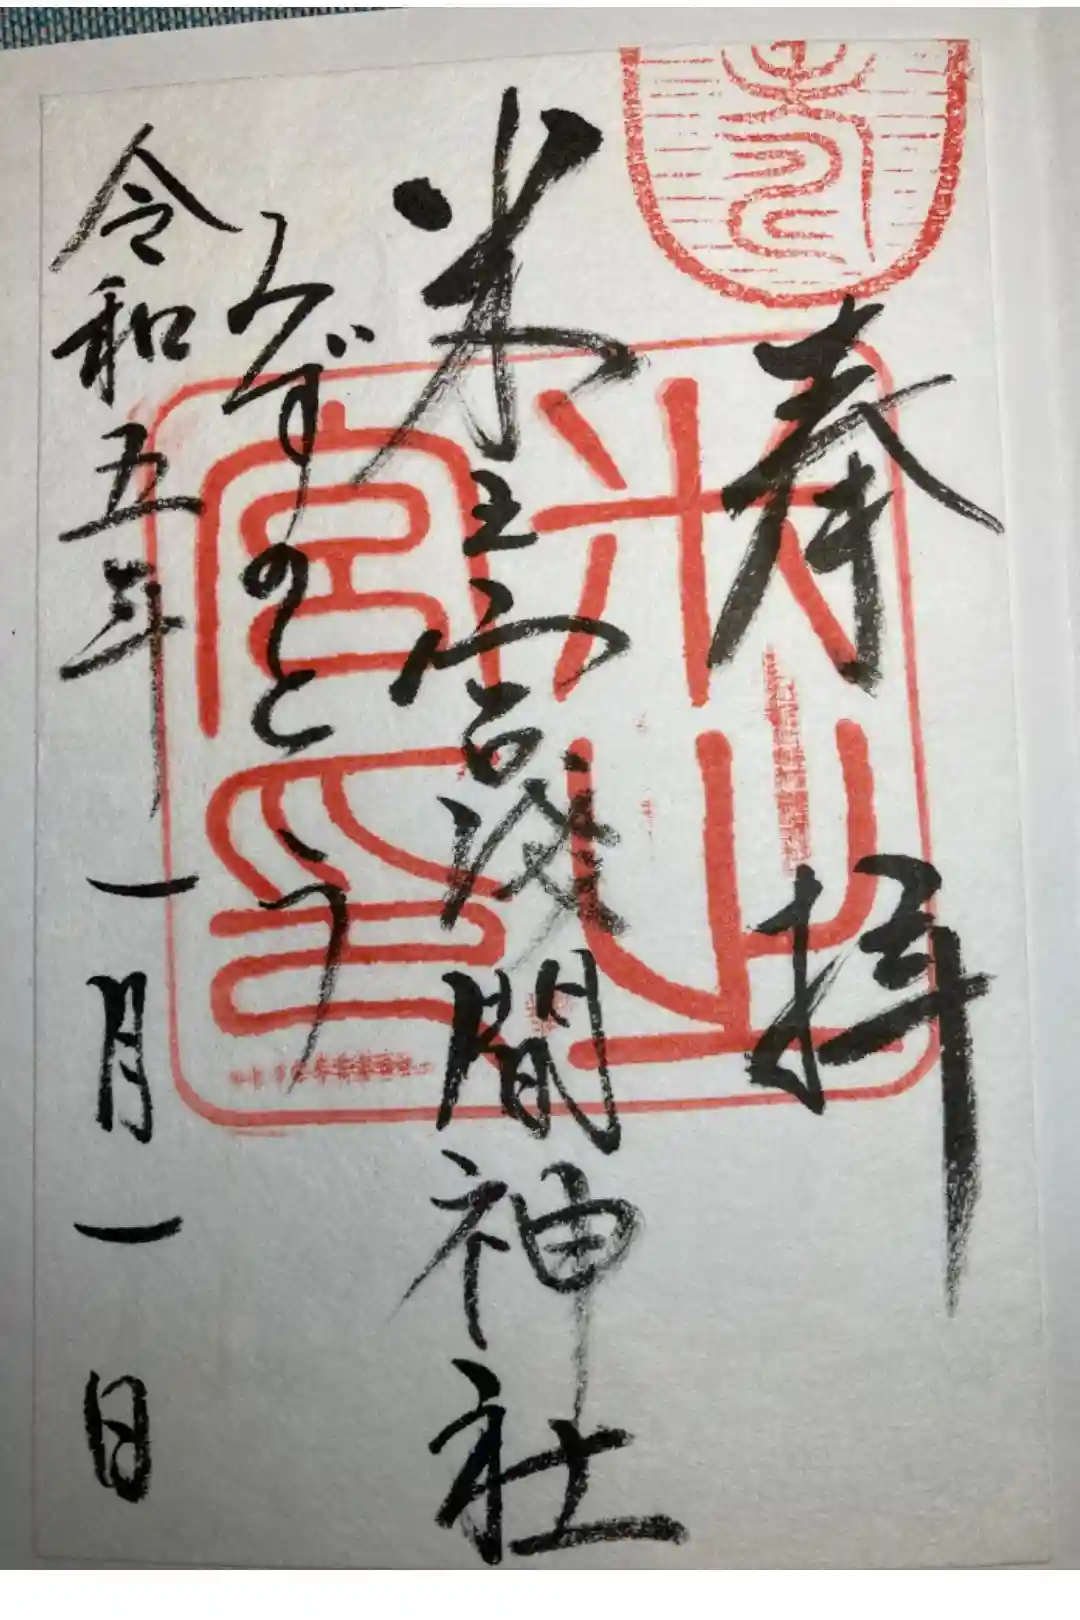 奉拝
米之宮浅間神社
みずのとう
令和五年一月一日
米之
宮印